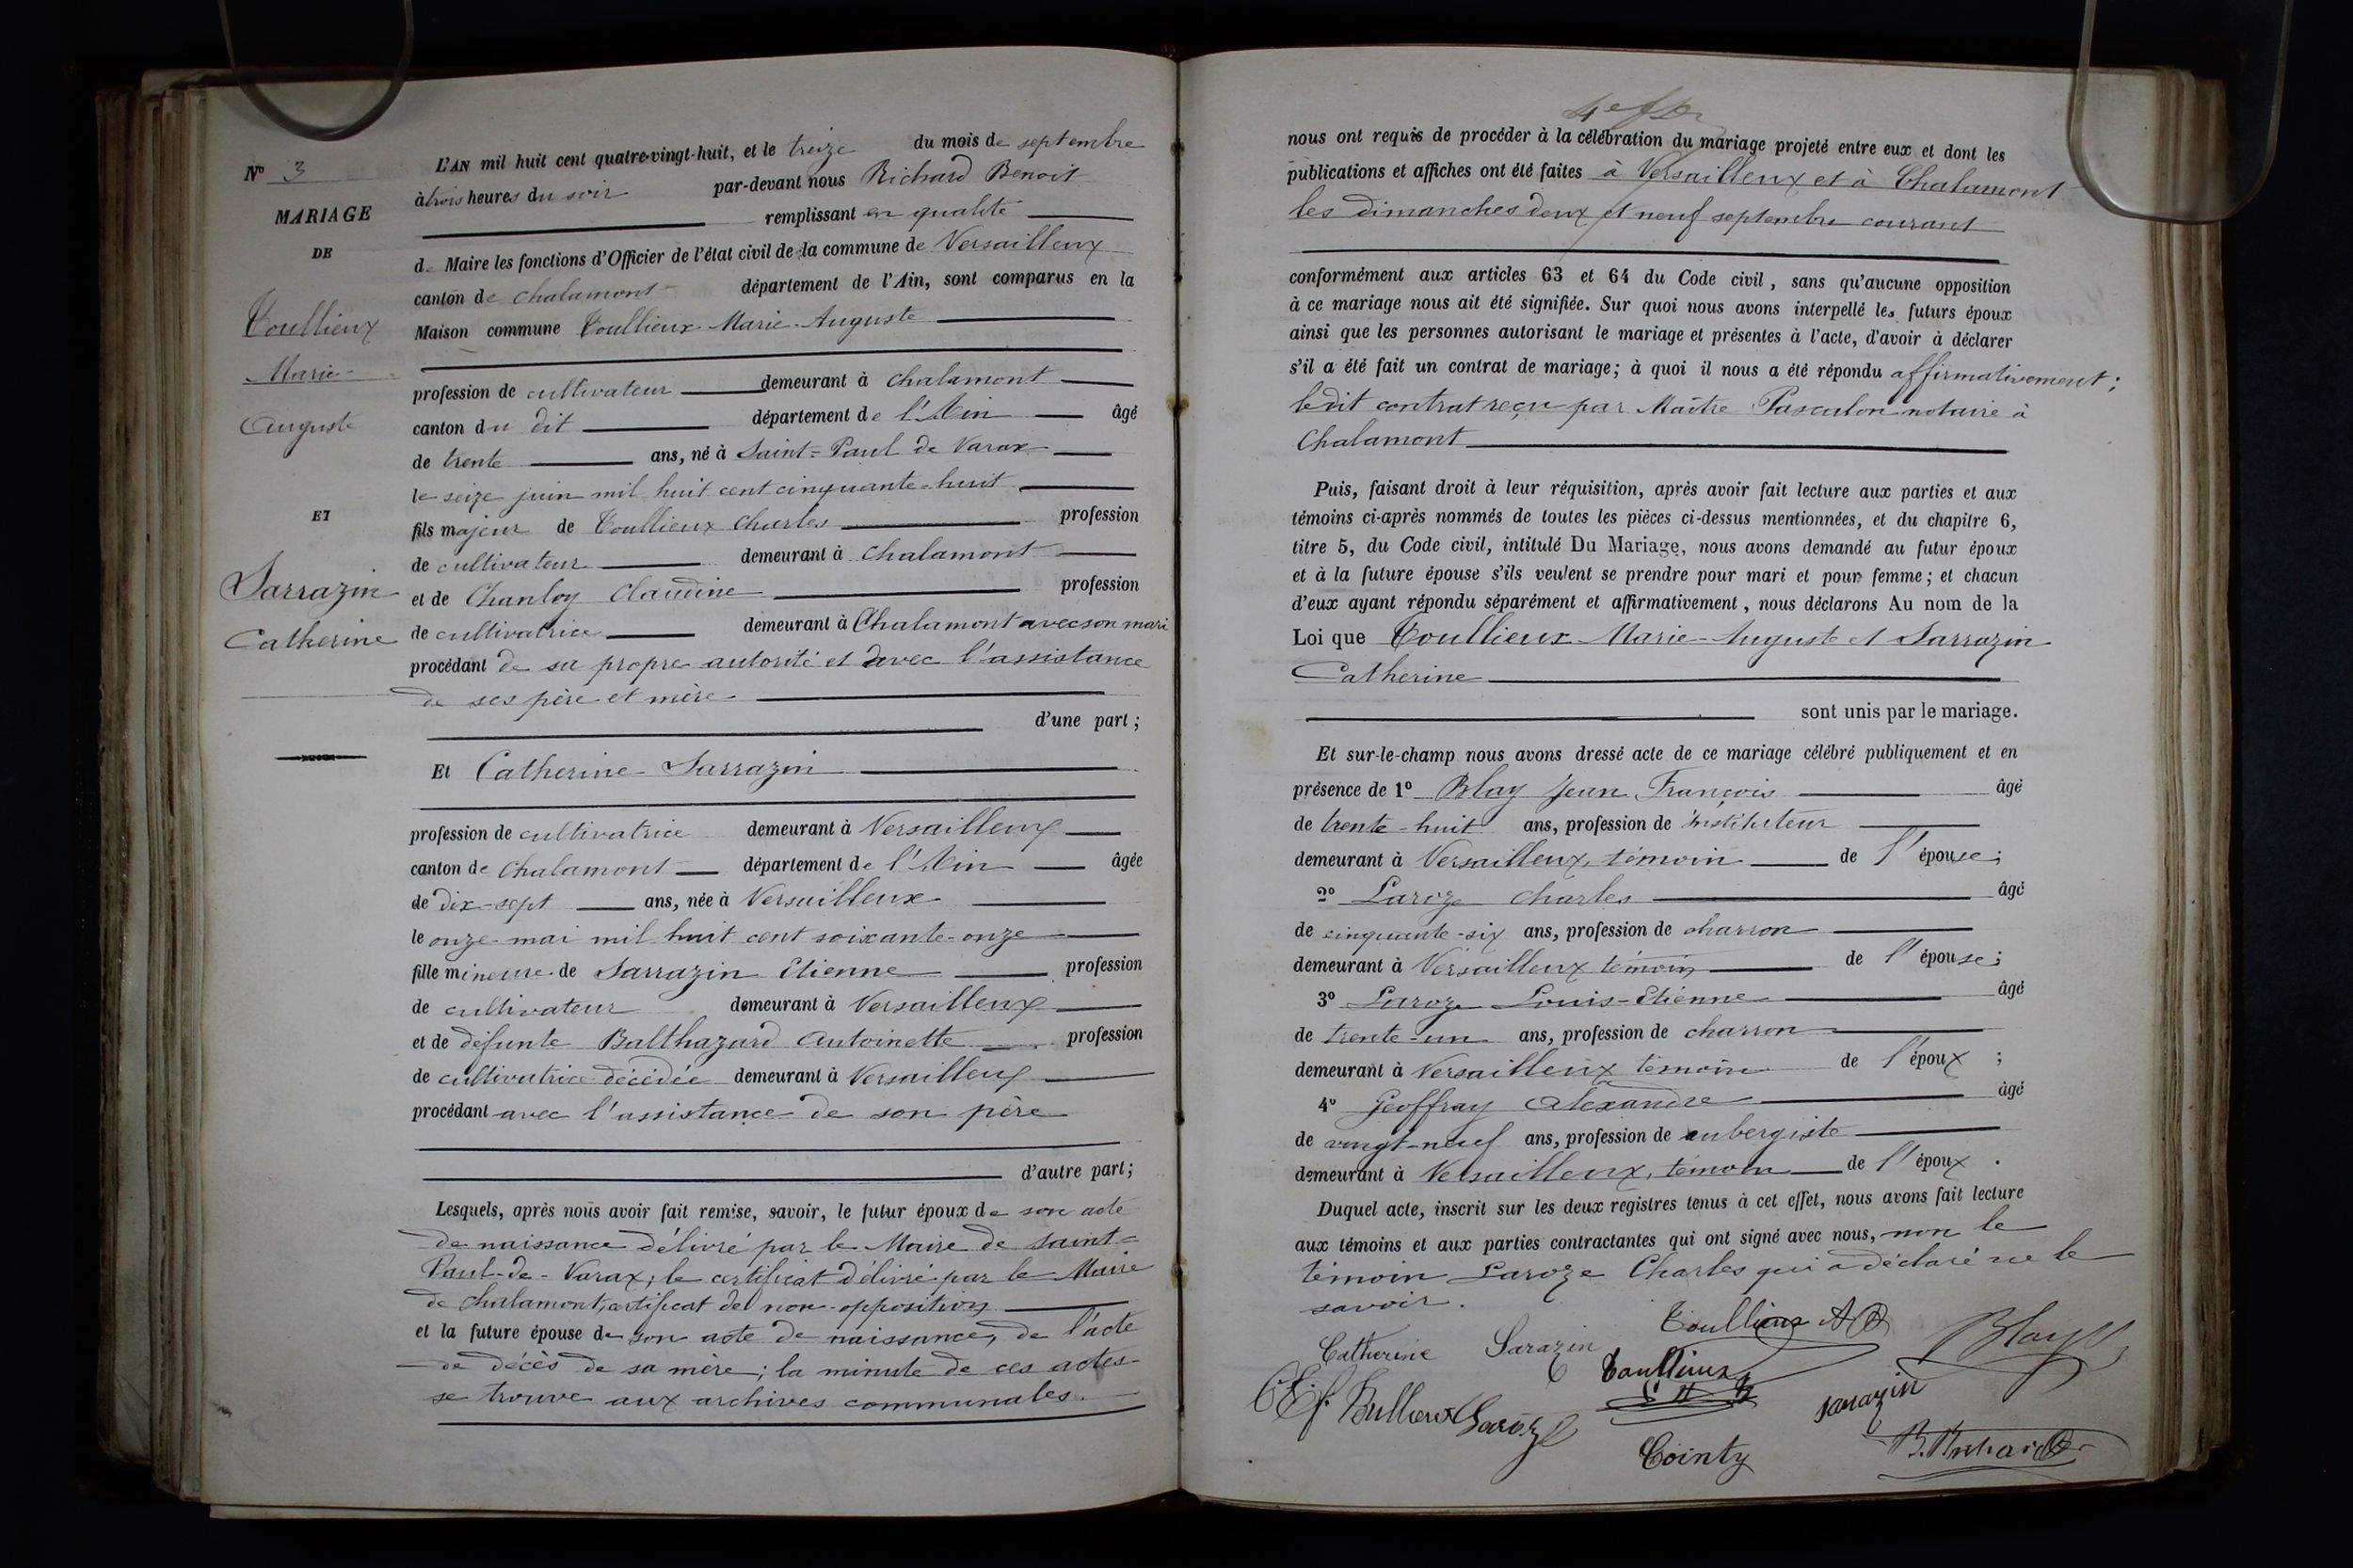 N° 3
MARIAGE
DE
Toullieux
Marie
Auguste
ET
Sarrazin
Catherine
L'AN mil huit cent quatre-vingt-huit, et le treize du mois de septembre
à trois heures du soir par-devant nous Richard Benoit
remplissant en qualité
de Maire les fonctions d'Officier de l'état civil de la commune de Versailleux
canton de Chalamont département de l'Ain, sont comparus en la
Maison commune Toullieux Marie-Auguste
profession de cultivateur demeurant à Chalamont
canton du dit département de l'Ain âgé
de trente ans, né à Saint-Paul de Varax
le seize juin mil huit cent cinquante-huit
fils majeur de Toullieux Charles profession
de cultivateur demeurant à Chalamont
et de Chanloy Claudine profession
de cultivatrice demeurant à Chalamont avec son mari
procédant de sa propre autorité et avec l'assistance
de ses père et mère
d'une part;
Et Catherine Sarrazin
profession de cultivatrice demeurant à Versailleux
canton de Chalamont département de l'Ain âgée
de dix-sept ans, née à Versailleux
le onze mai mil huit cent soixante-onze
fille mineure de Sarrazin Etienne profession
de cultivateur demeurant à Versailleux
et de défunte Balthazard Antoinette profession
de cultivatrice décédée demeurant à Versailleux
procédant avec l'assistance de son père
d'autre part;
Lesquels, après nous avoir fait remise, savoir, le futur époux de son acte
de naissance délivré par le Maire de Saint-
Paul-de-Varax, le certificat délivré par le Maire
de Chalamont, certificat de non-opposition
et la future épouse de son acte de naissance, de l'acte
de décès de sa mère; la minute de ces actes
se trouve aux archives communales.
nous ont requis de procéder à la célébration du mariage projeté entre eux et dont les
publications et affiches ont été faites à Versailleux et à Chalamont
les dimanches deux et neuf septembre courant
conformément aux articles 63 et 64 du Code civil, sans qu'aucune opposition
à ce mariage nous ait été signifiée. Sur quoi nous avons interpellé les futurs époux
ainsi que les personnes autorisant le mariage et présentes à l'acte, d'avoir à déclarer
s'il a été fait un contrat de mariage; à quoi il nous a été répondu affirmativement;
ledit contrat reçu par Maître Pascalon notaire à
Chalamont
Puis, faisant droit à leur réquisition, après avoir fait lecture aux parties et aux
témoins ci-après nommés de toutes les pièces ci-dessus mentionnées, et du chapitre 6,
titre 5, du Code civil, intitulé Du Mariage, nous avons demandé au futur époux
et à la future épouse s'ils veulent se prendre pour mari et pour femme; et chacun
d'eux ayant répondu séparément et affirmativement, nous déclarons Au nom de la
Loi que Toullieux Marie-Auguste et Sarrazin
Catherine
sont unis par le mariage.
Et sur-le-champ nous avons dressé acte de ce mariage célébré publiquement et en
présence de 1° Blay Jean François âgé
de trente-huit ans, profession de instituteur
demeurant à Versailleux, témoin de l'épouse;
2° Laroze Charles âgé
de cinquante-six ans, profession de charron
demeurant à Versailleux témoin de l'épouse;
3° Laroze Louis-Etienne âgé
de trente-un ans, profession de charron
demeurant à Versailleux témoin de l'époux;
4° Geoffray Alexandre âgé
de vingt-neuf ans, profession de aubergiste
demeurant à Versailleux, témoin de l'époux.
Duquel acte, inscrit sur les deux registres tenus à cet effet, nous avons fait lecture
aux témoins et aux parties contractantes qui ont signé avec nous, non le
témoin Laroze Charles qui a déclaré ne le
savoir.
Catherine Sarazin Toullieux Blay
Toullieux sarazin
Laroze
Cointy B. Richard